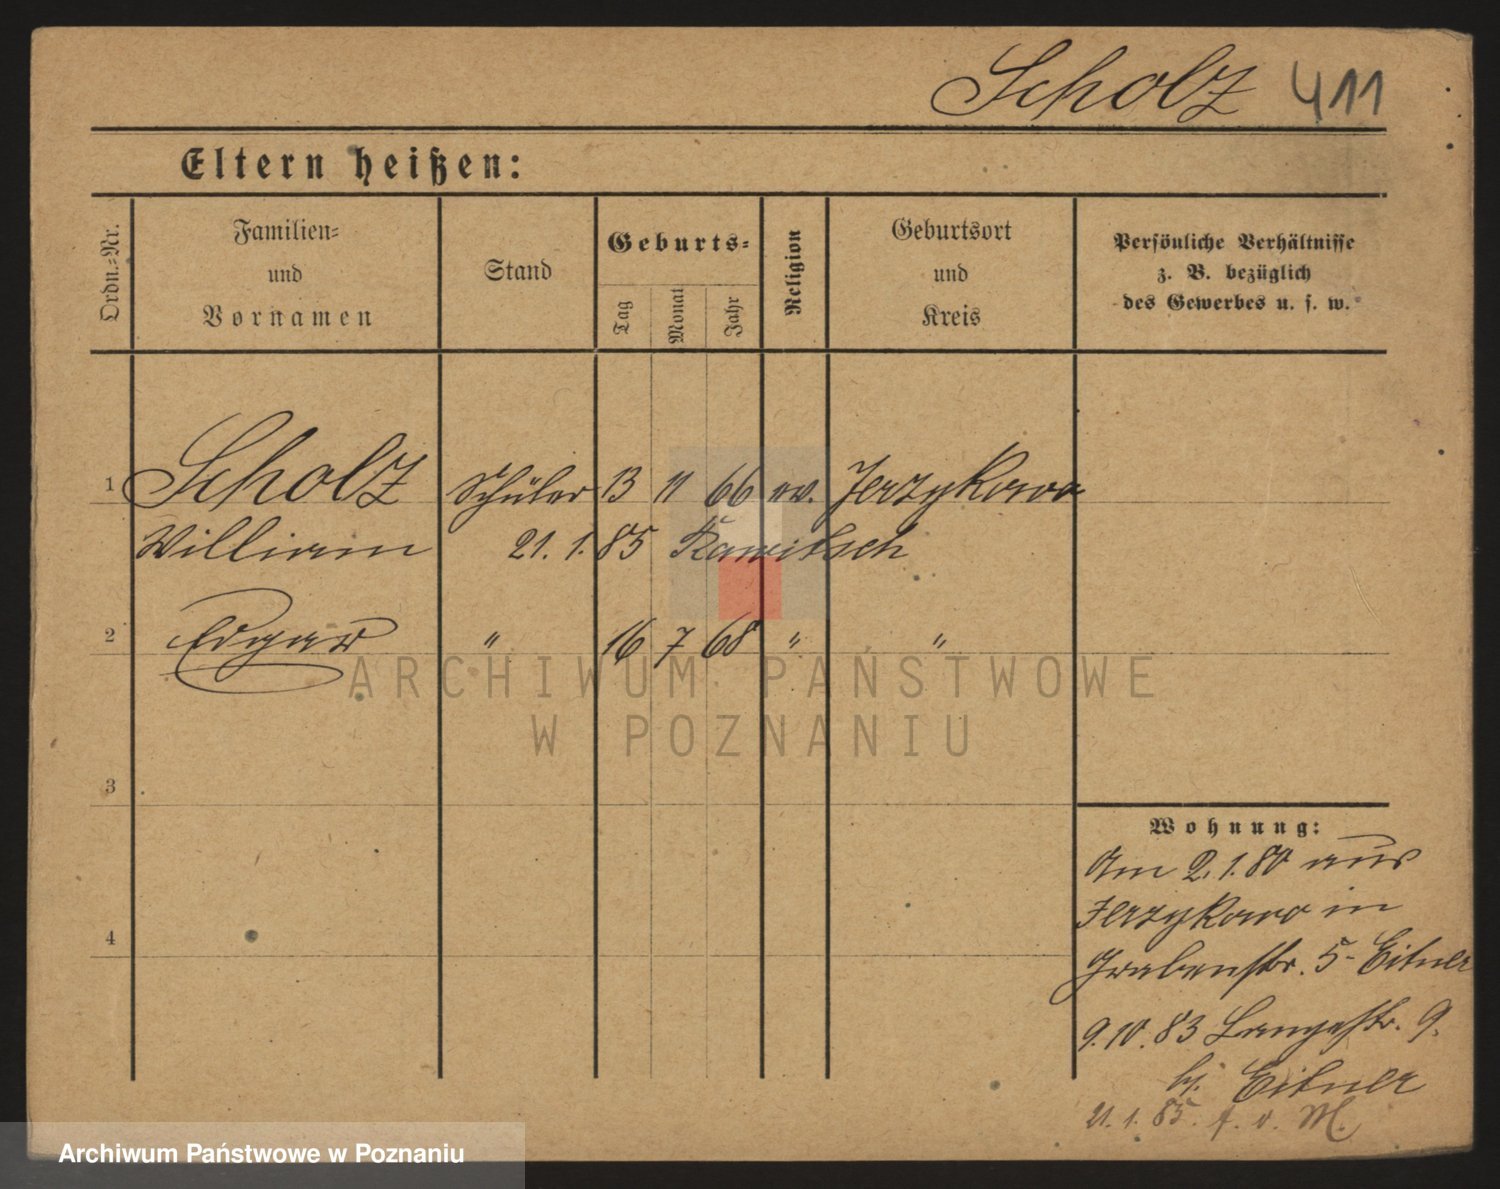 Scholz 411
Eltern heißen:
Ordn.-Nr.
Familien-
und
Vornamen
Stand
Geburts-
Tag
Monat
Jahr
Religion
Geburtsort
und
Kreis
Persönliche Verhältnisse
z. B. bezüglich
des Gewerbes u. s. w.
1 Scholz Schüler 13 11 66 ev. Jerzykowo
William 21. 1. 85 Rawitsch
2 Edgar " 16 7 68 " "
3
4
Wohnung:
Am 2. 1. 80 aus
Jerzykowo in
Grabenstr. 5 - Eitner
9. 10. 83 Langestr. 9.
bj. Eitner
21. 1. 85. f. v. M.
ARCHIWUM PAŃSTWOWE
W POZNANIU
Archiwum Państwowe w Poznaniu